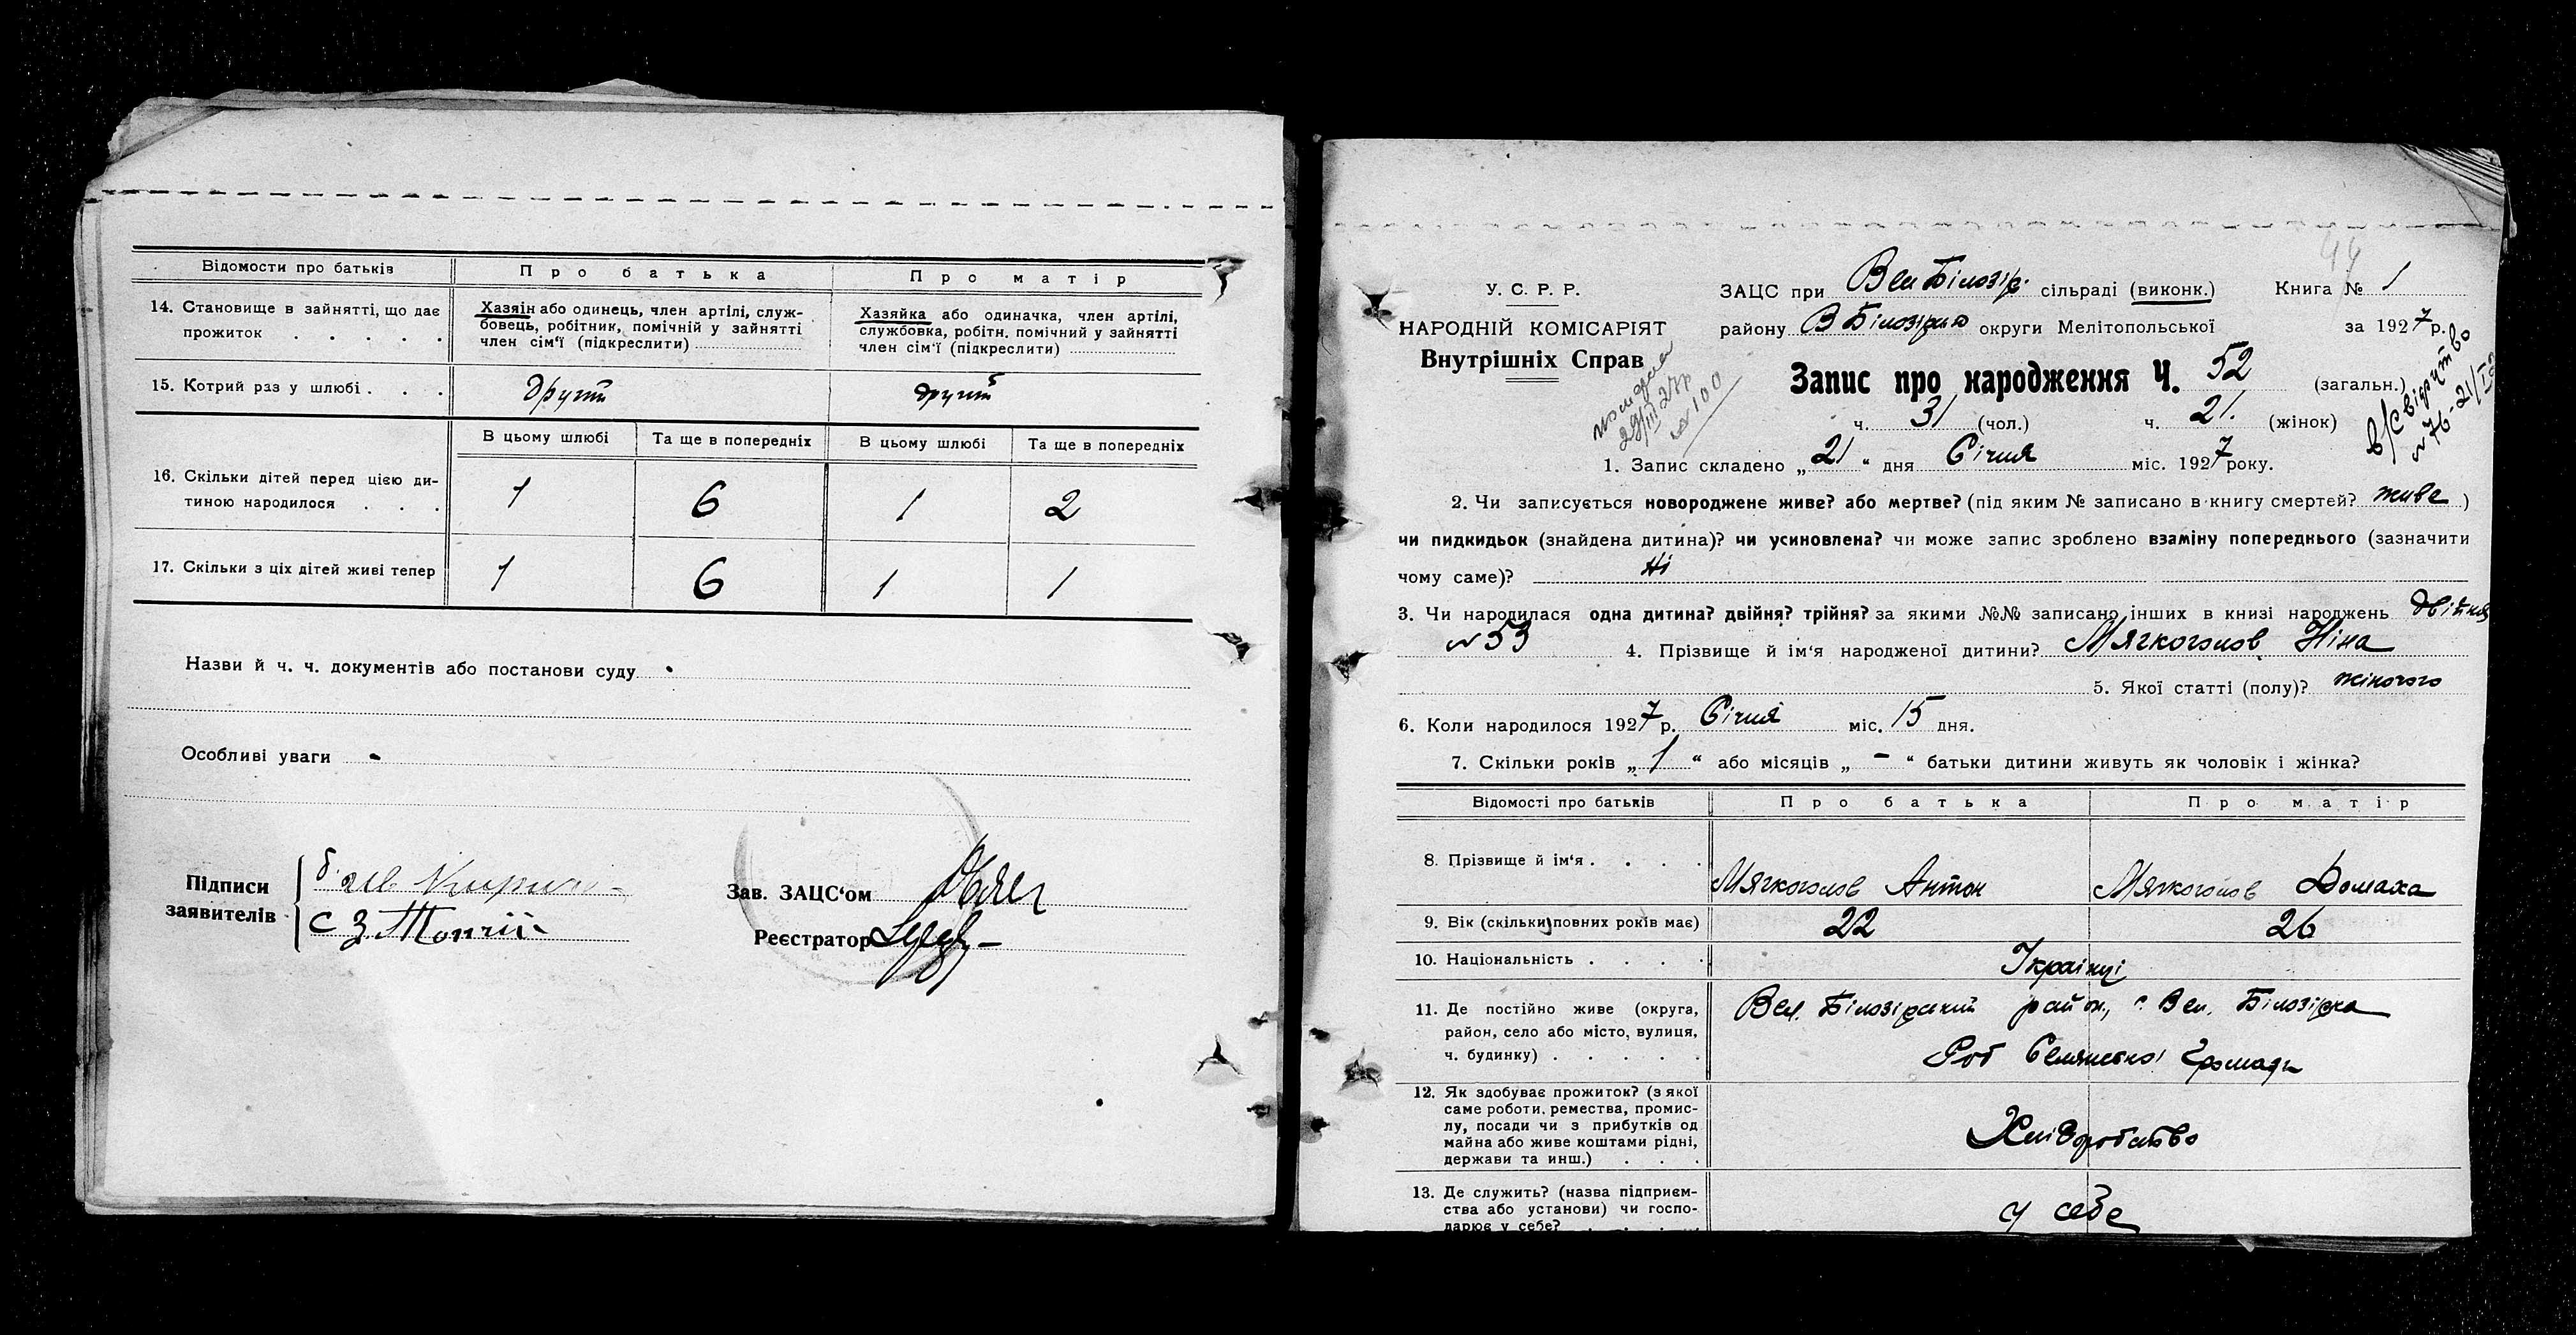 Відомости про батьків
Про батька
Про матір
14. Становище в зайнятті, що дає
прожиток . . . . .
Хазяїн або одинець, член артілі, служ-
бовець, робітник, помічній у зайнятті
член сім'ї (підкреслити)
Хазяйка або одиначка, член артілі,
службовка, робітн. помічний у зайнятті
член сім'ї (підкреслити)
15. Котрий раз у шлюбі . . .
другий
другий
В цьому шлюбі
Та ще в попередніх
В цьому шлюбі
Та ще в попередніх
16. Скільки дітей перед цією ди-
тиною народилося . . .
1 6 1 2
17. Скільки з ціх дітей живі тепер
1 6 1 1
Назви й ч. ч. документів або постанови суду
Особливі уваги
Підписи
заявителів
Зав. ЗАЦС'ом
Реєстратор
44
У. С. Р. Р.
НАРОДНІЙ КОМІСАРІЯТ
Внутрішніх Справ
ЗАЦС при Вел Білозір. сільраді (виконк.) Книга № 1
району В Білозірка округи Мелітопольської за 1927 р.
Запис про народження Ч. 52 (загальн.)
ч. 31 (чол.) ч. 21. (жінок)
померла
29/III 27р
№ 100
в/свідоцтво
№ 76 - 21/I
1. Запис складено „21“ дня Січня міс. 1927 року.
2. Чи записується новороджене живе? або мертве? (під яким № записано в книгу смертей? живе)
чи пидкидьок (знайдена дитина)? чи усиновлена? чи може запис зроблено взаміну попереднього (зазначити
чому саме)? Ні
3. Чи народилася одна дитина? двійня? трійня? за якими №№ записано інших в книзі народжень двійня
№ 53 4. Прізвище й ім'я народженої дитини? Мягкоголов Ніна
5. Якої статті (полу)? жіночого
6. Коли народилося 1927 р. Січня міс. 15 дня.
7. Скільки років „1“ або місяців „-“ батьки дитини живуть як чоловік і жінка?
Відомості про батьків
Про батька
Про матір
8. Прізвище й ім'я . . . .
Мягкоголов Антон
Мягкоголов Домаха
9. Вік (скільки повних років має)
22
26
10. Національність . . . .
Українці
11. Де постійно живе (округа,
район, село або місто, вулиця,
ч. будинку) . . . . .
Вел. Білозірський район, с. Вел. Білозірка
Громади
12. Як здобуває прожиток? (з якої
саме роботи, ремества, промис-
лу, посади чи з прибутків од
майна або живе коштами рідні,
держави та инш.) . . .
Хліборобство
13. Де служить? (назва підприєм-
ства або установи) чи госпо-
дарює у себе? . . . .
у себе